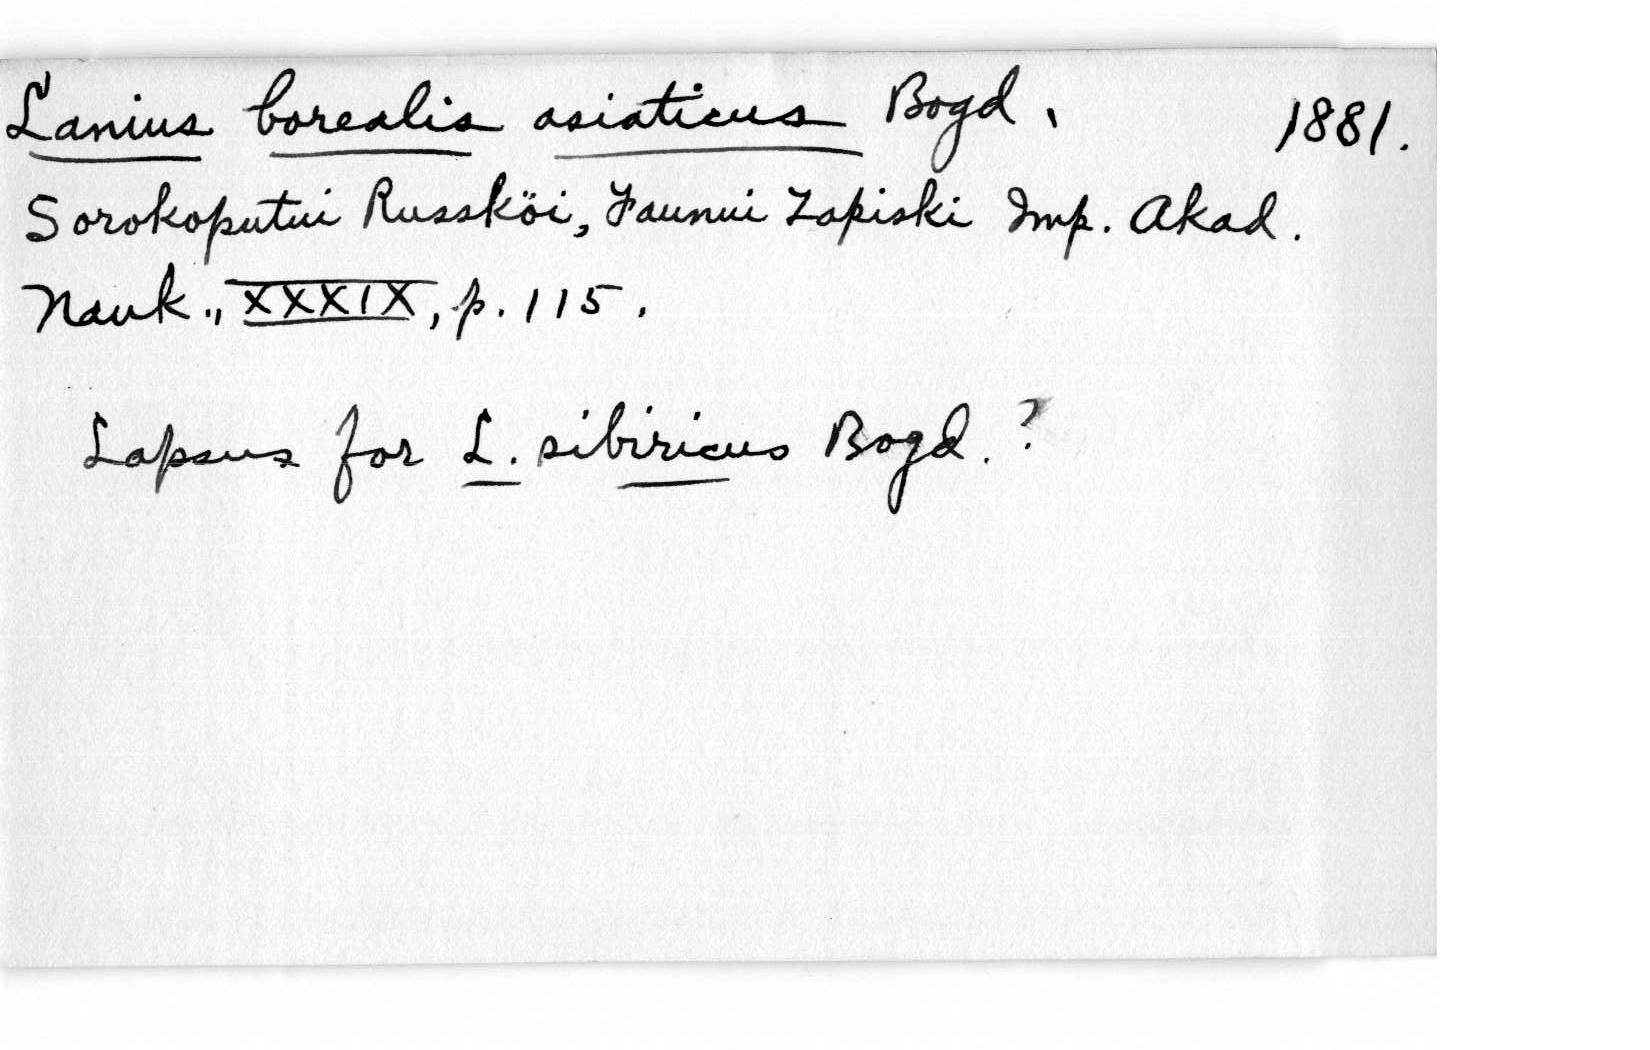 Lanius borealis asiaticus Bogd. 1881.
Sorokoputui Russköi, Faunui Zapiski Imp. Akad.
Nauk., XXXIX, p. 115.
Lapsus for L. sibiricus Bogd.?